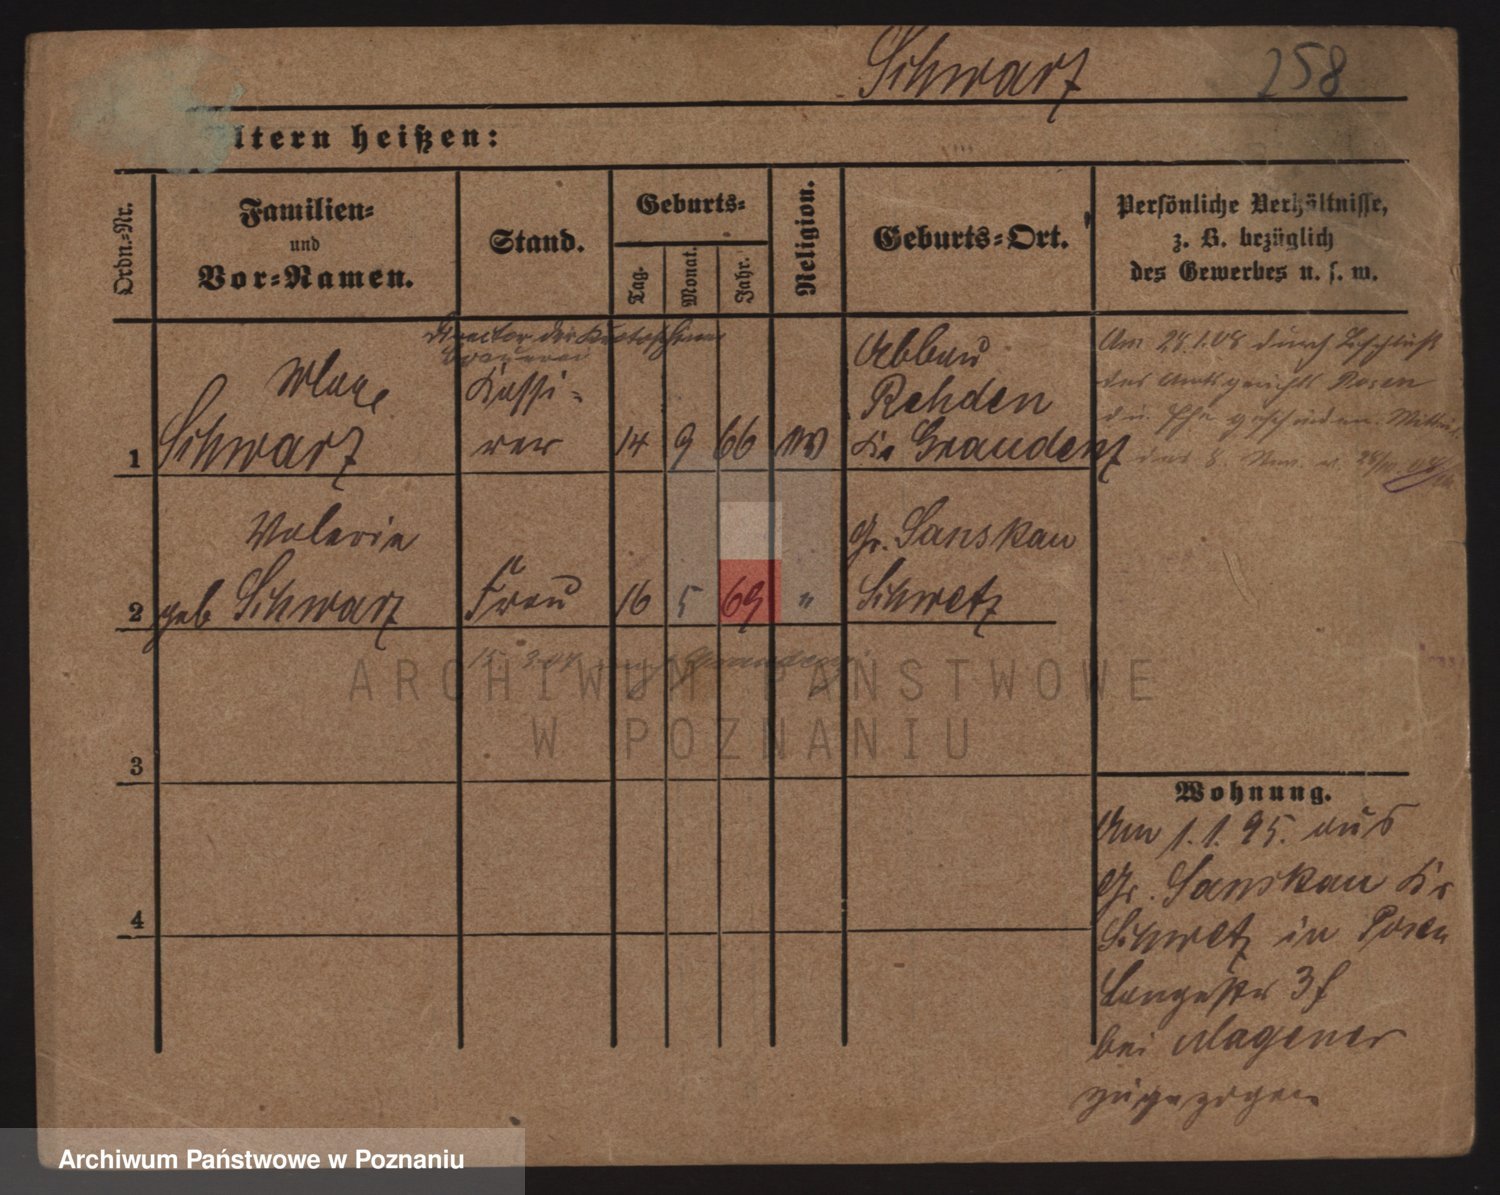 Schwarz 258
ltern heißen:
Ordn.-Nr.
Familien-
und
Vor-Namen.
Stand.
Geburts-
Tag.
Monat.
Jahr.
Religion.
Geburts-Ort.
Persönliche Verhältnisse,
z. B. bezüglich
des Gewerbes u. s. m.
Director der
Max
Schwarz
Kassi-
rer
1 14 9 66
Abbau
Rehden
Kr Graudenz
Am 28.1.08 durch Beschluß
des Amtsgerichts Posen
d. Ehe geschieden.
Valerie
geb Schwarz
2 Frau 16 5 69 "
Gr. Sanskau
Schwetz
3
4
Wohnung.
Am 1.1.95. aus
Gr. Sanskau Kr
Schwetz in Posen
Langestr 3
bei Wagener
zugezogen
ARCHIWUM PAŃSTWOWE
W POZNANIU
Archiwum Państwowe w Poznaniu